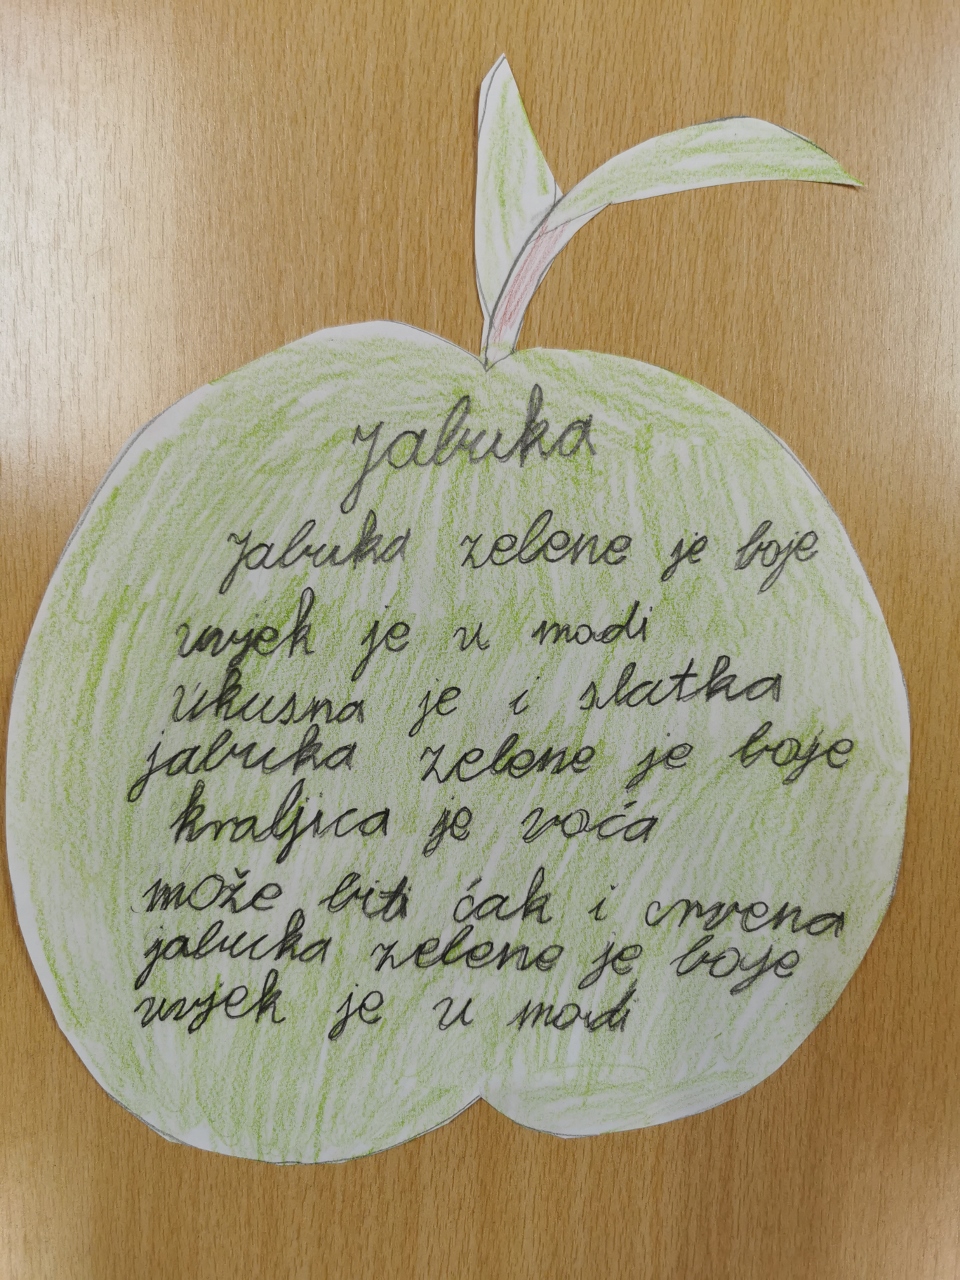 Jabuka
Jabuka zelene je boje
uvjek je u modi
ukusna je i slatka
jabuka zelene je boje
kraljica je voća
može biti ćak i crvena
jabuka zelene je boje
uvjek je u modi